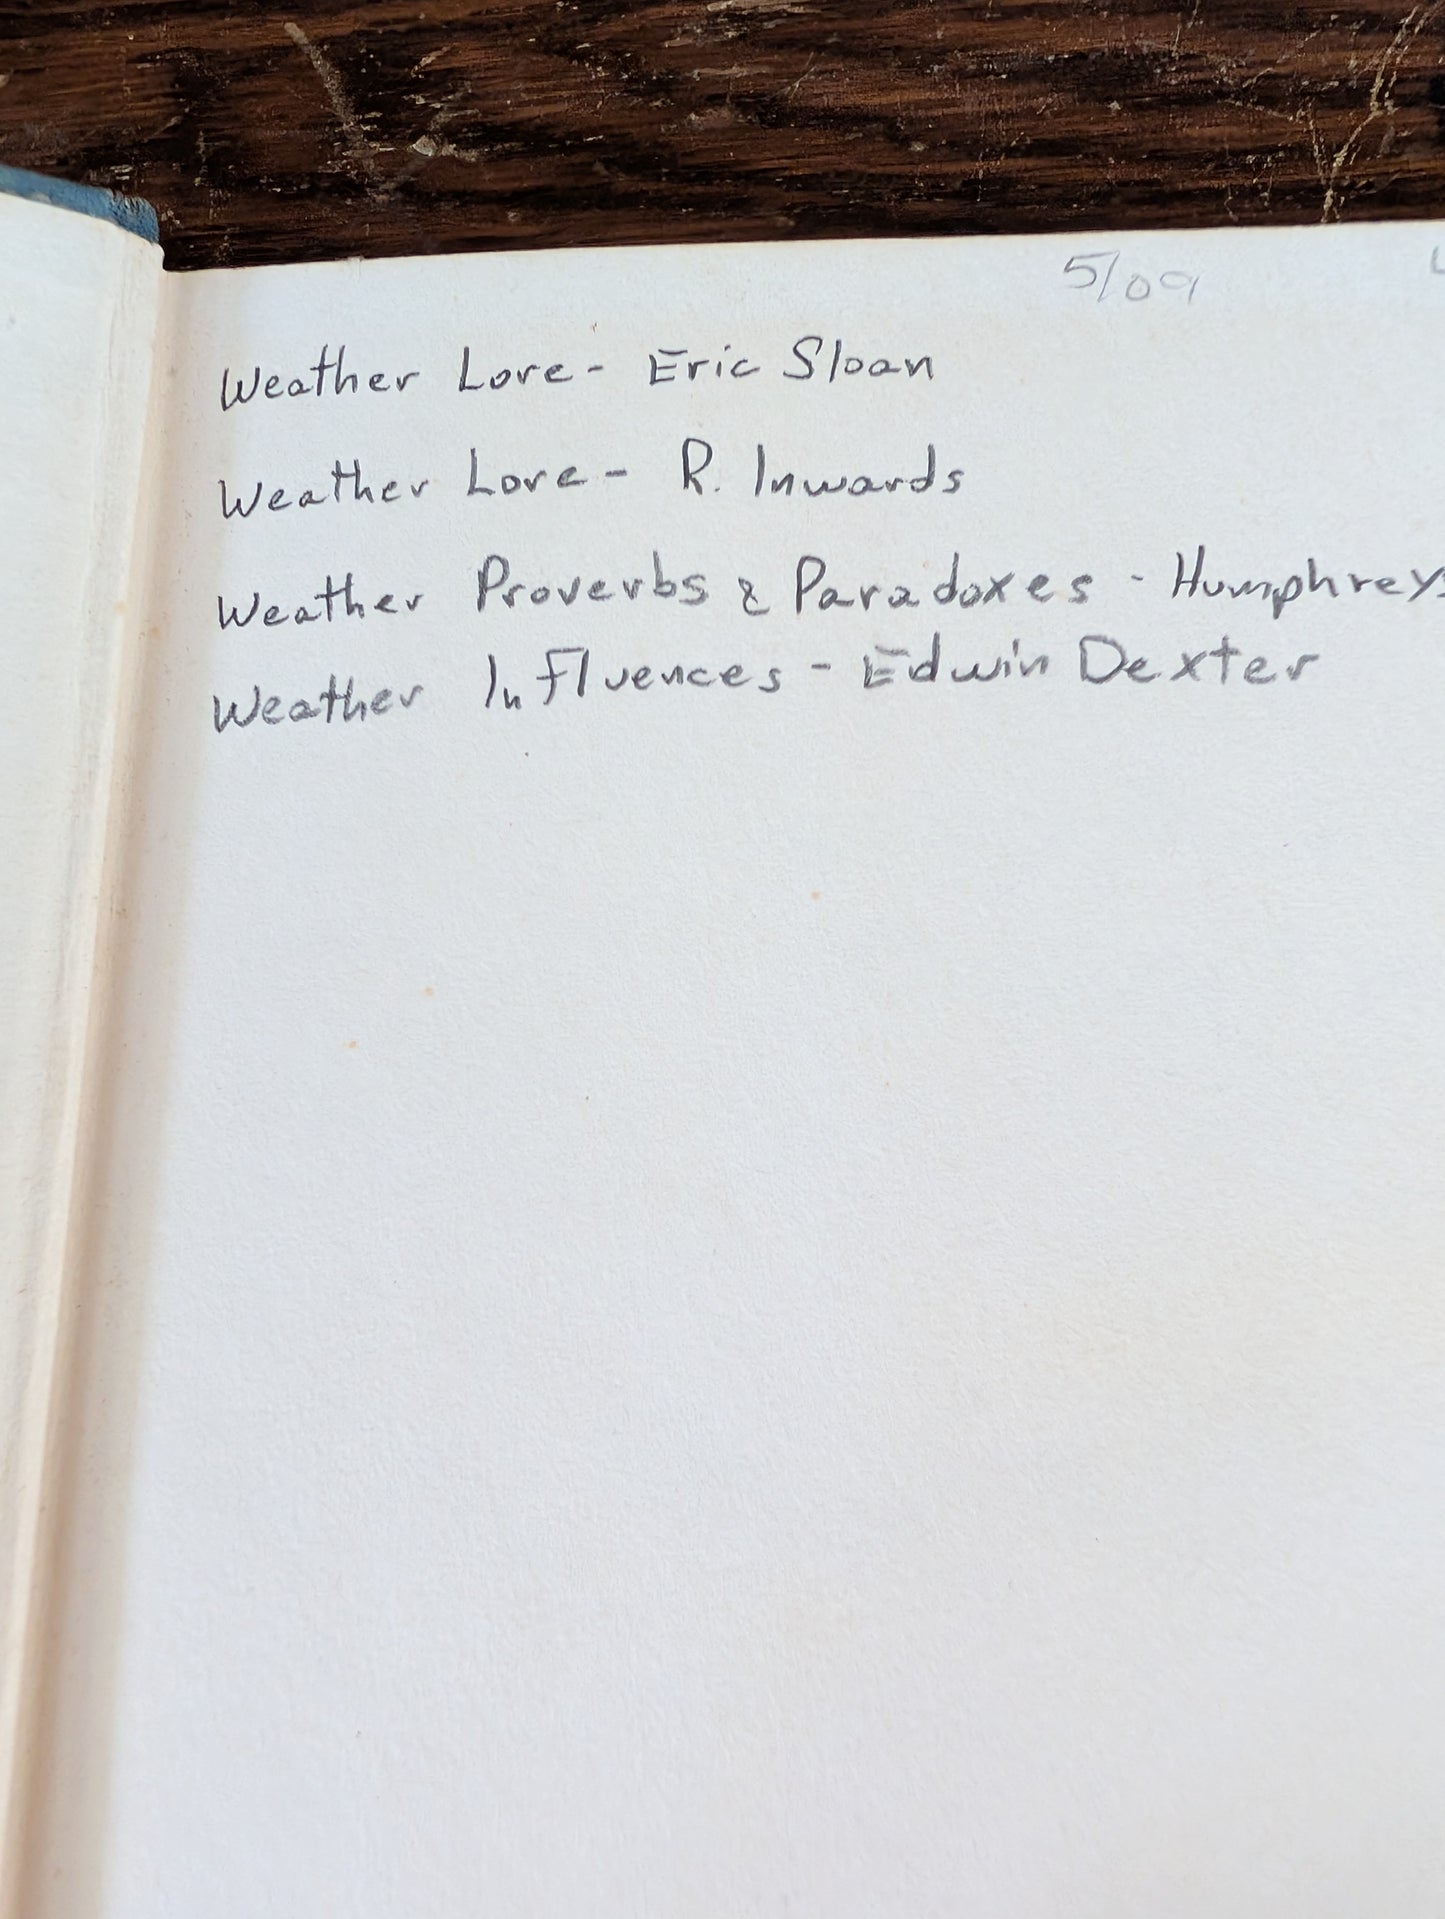 5/09
Weather Lore - Eric Sloan
Weather Lore - R. Inwards
Weather Proverbs & Paradoxes - Humphreys
Weather Influences - Edwin Dexter